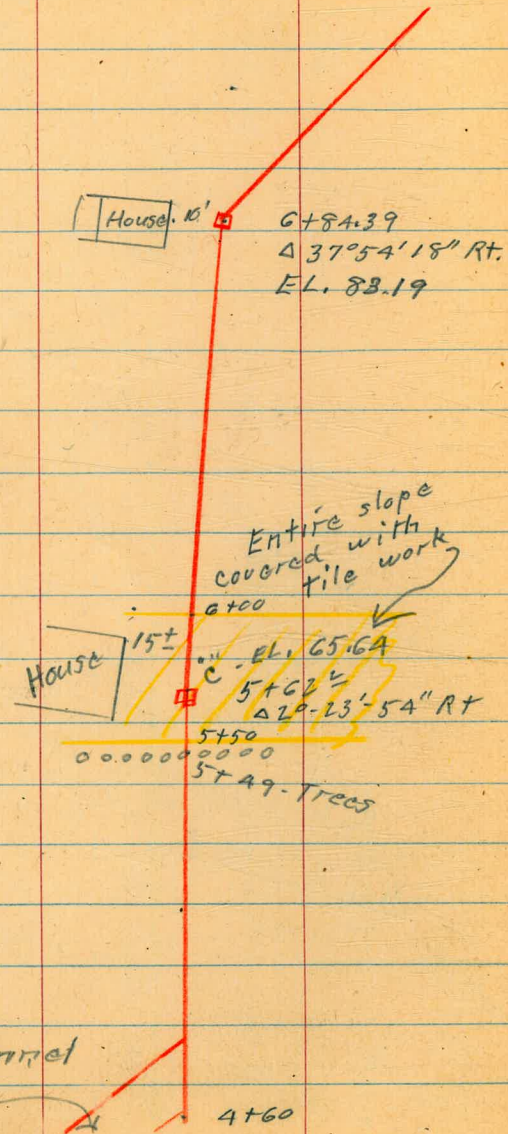 House. 10'
6+84.39
Δ 37°54'18" Rt.
EL. 83.19
Entire slope
covered with
tile work
6+00
15±
House
"C" - EL. 65.64
5+62±
Δ2°-23'-54" Rt
5+50
5+49-Trees
4+60